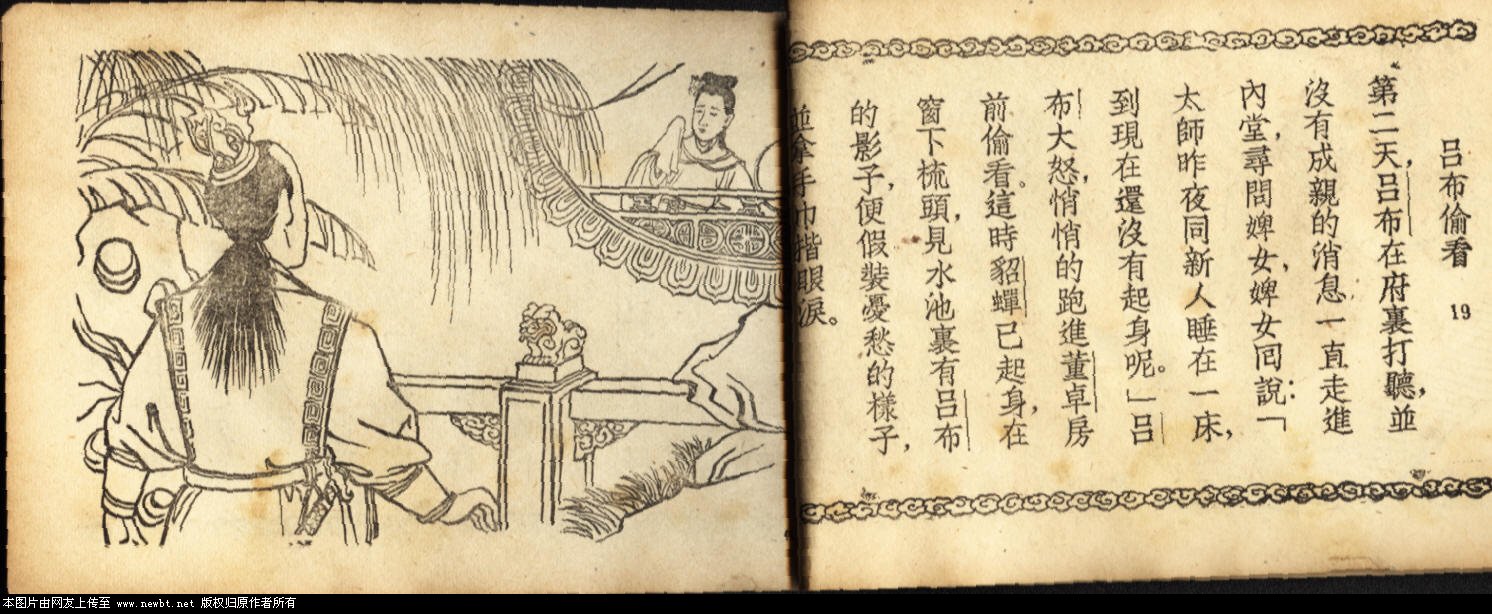 呂布偷看 19
第二天，呂布在府裏打聽，並
沒有成親的消息一直走進
內堂，尋問婢女，婢女囘說：「
太師昨夜同新人睡在一床，
到現在還沒有起身呢。」呂
布大怒，悄悄的跑進董卓房
前偷看。這時貂蟬已起身，在
窗下梳頭，見水池裏有呂布
的影子，便假裝憂愁的樣子，
並拿手巾揩眼淚。
本图片由网友上传至 www.newbt.net 版权归原作者所有